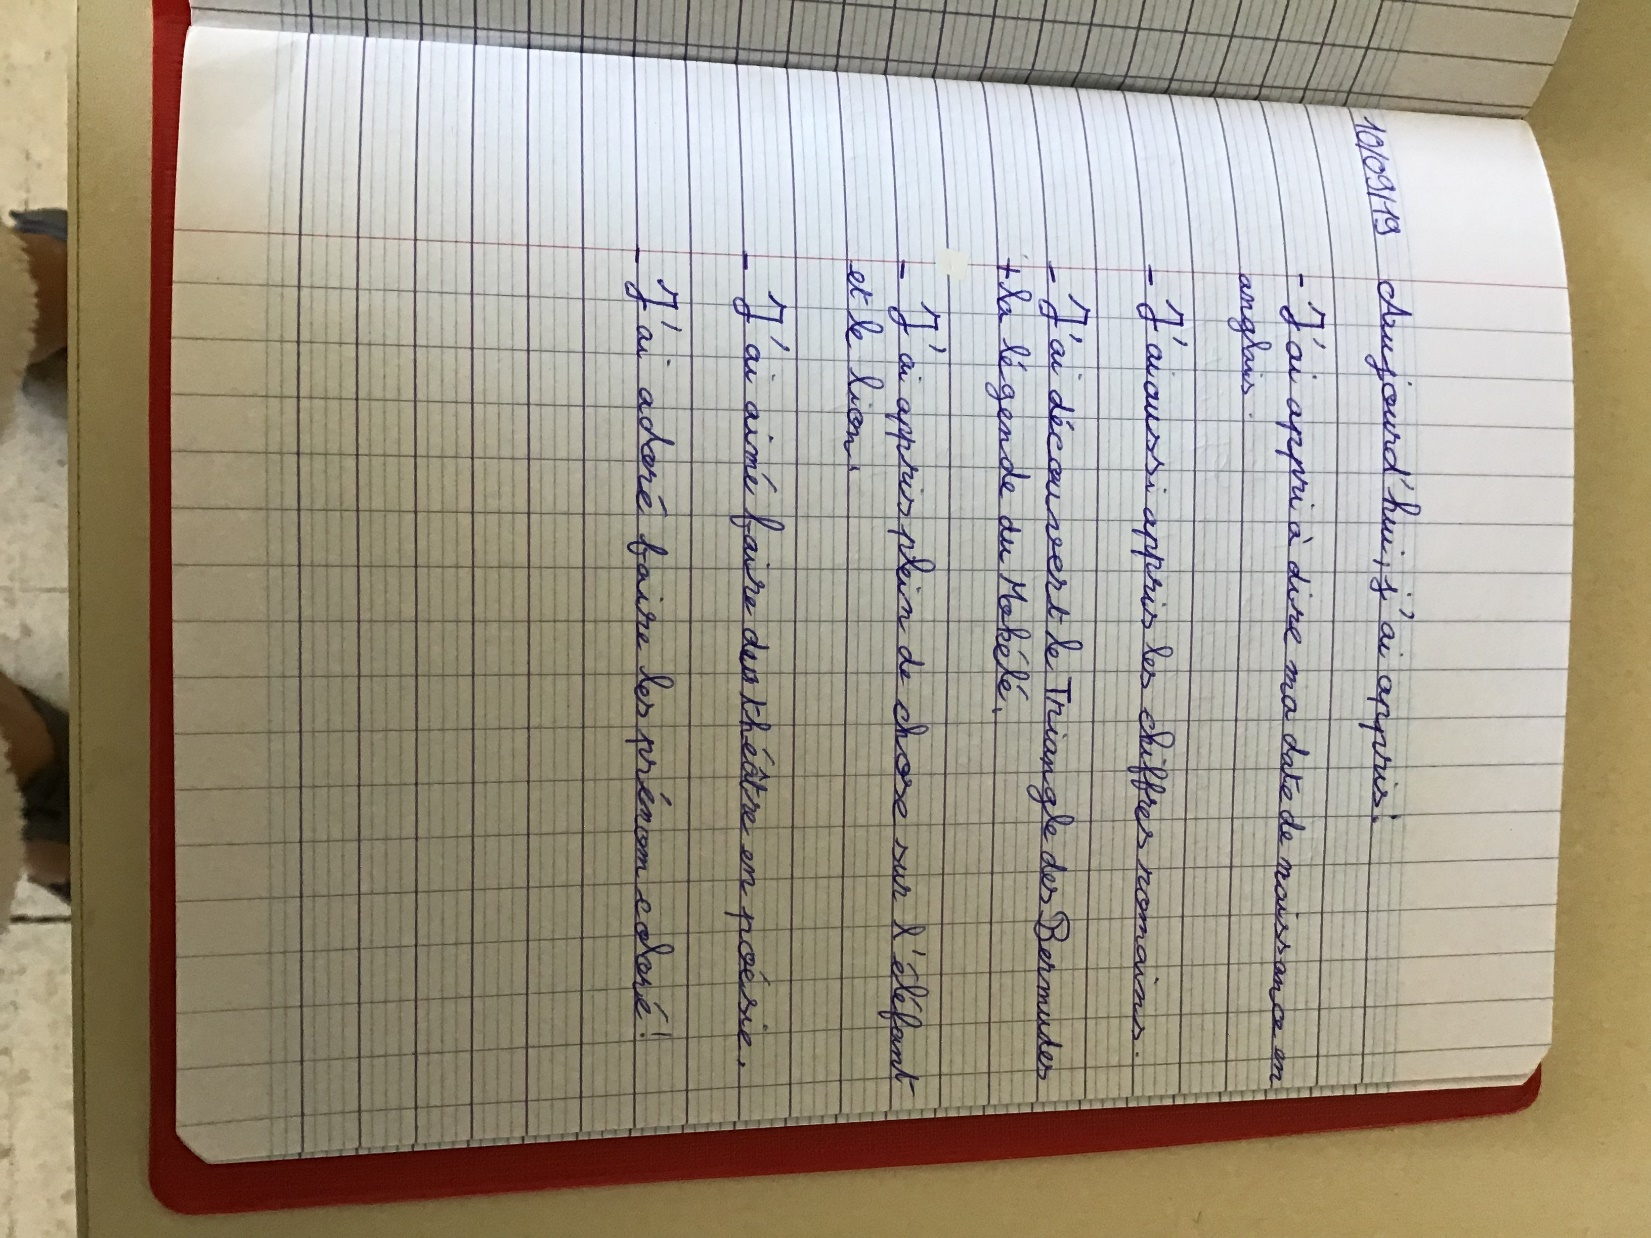 10/09/19 Aujourd'hui, j'ai appris.
- J'ai appri à dire ma date de naissance en
anglais.
- J'ai aussi appris les chiffres romains.
- J'ai découvert le Triangle des Bermudes
+ la légende du Mokélé.
- J'ai appris plein de chose sur l'éléfant
et le lion.
- J'ai aimé faire du théâtre en poésie.
- J'ai adoré faire les prénom coloré!